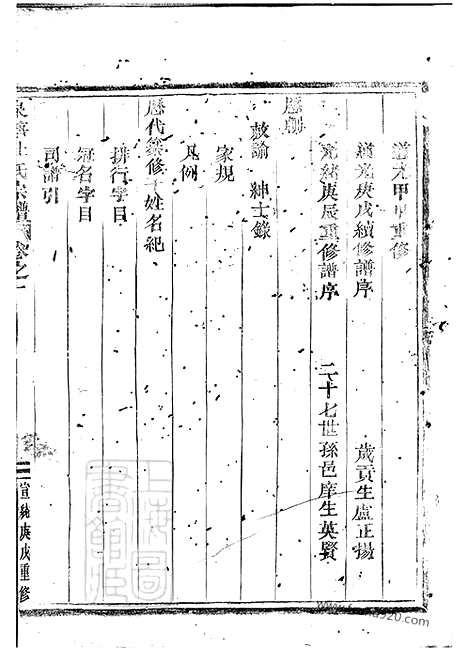 道光甲申重修
道光庚戌續修譜序 歲貢生盧正揚
光緒庚辰重修譜序 二十七世孫邑庠生英賢
敕諭 紳士錄
家規
凡例
歷代纂修丁姓名紀
排行字目
冠名字目
司譜引
氏宗譜 卷之一 宣統庚戌重修